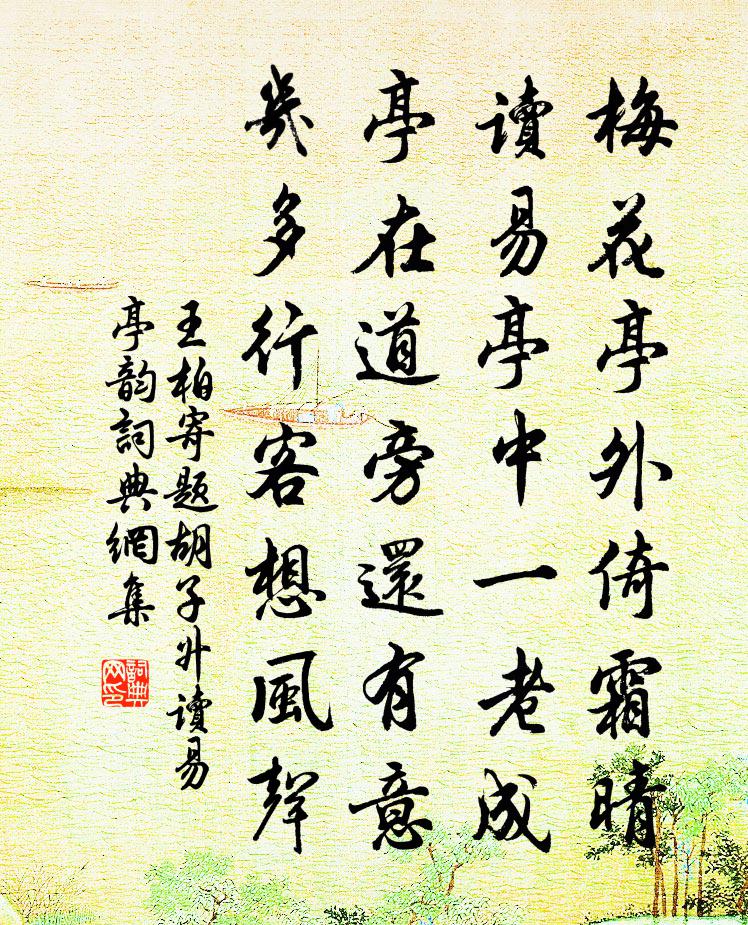 梅花亭外倚霜晴
讀易亭中一老成
亭在道旁還有意
幾多行客想風聲
王柏寄題胡子升讀易
亭韵詞典網集
詞典网印